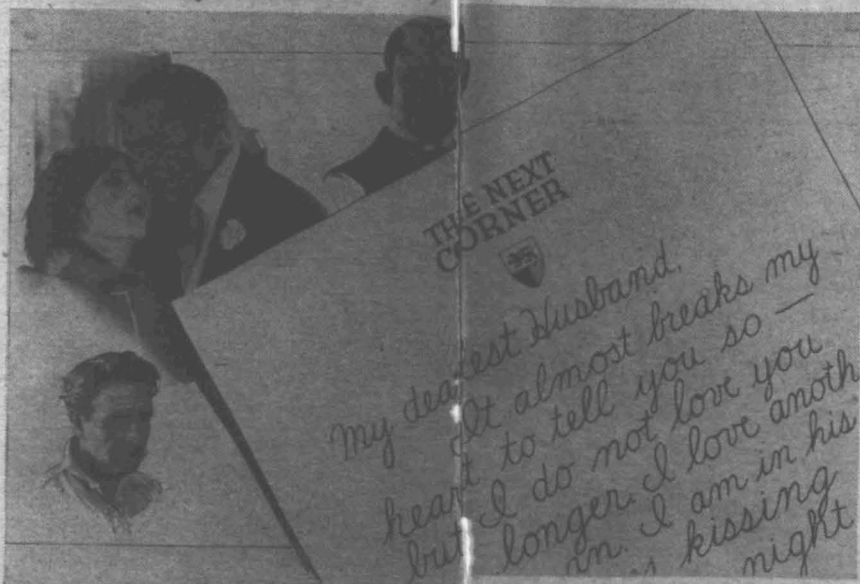 THE NEXT
CORNER
My dearest Husband,
It almost breaks my
heart to tell you so —
but I do not love you
longer. I love anoth
in. I am in his
kissing
night